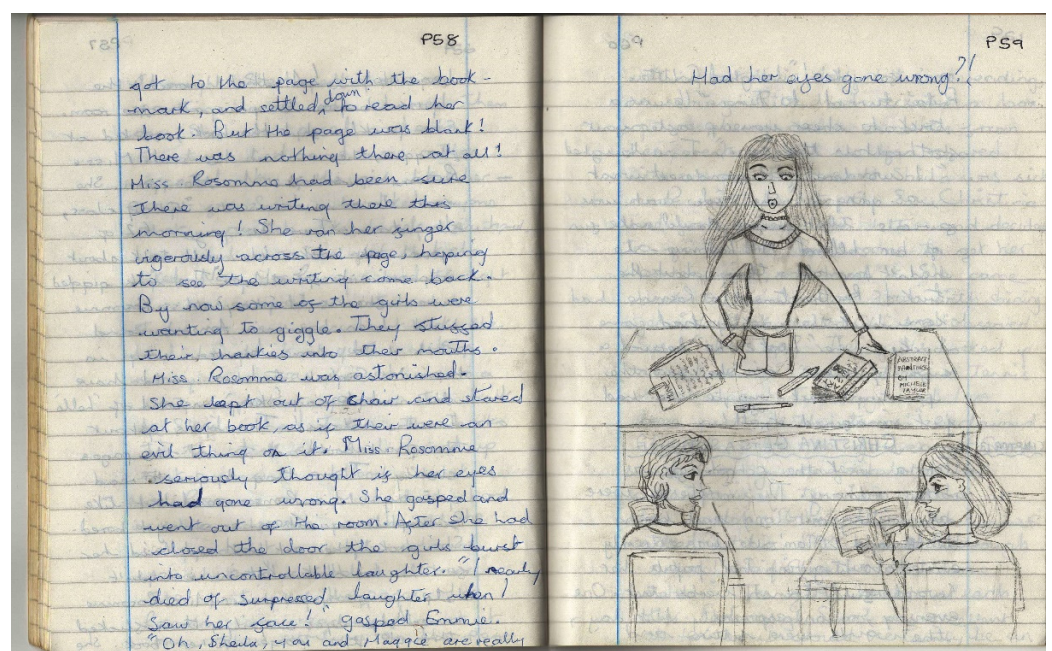 P58
got to the page with the book-
mark, and settled down to read her
book. But the page was blank!
There was nothing there at all!
Miss. Rosomme had been sure
there was writing there this
morning! She ran her finger
vigerously across the page, hoping
to see the writing come back.
By now some of the girls were
wanting to giggle. They stuffed
their hankies into their mouths.
Miss. Rosomme was astonished.
She leapt out of chair and stared
at her book, as if their were an
evil thing on it. Miss Rosomme
seriously thought if her eyes
had gone wrong. She gasped and
went out of the room. After she had
closed the door the girls burst
into uncontrollable laughter. "I nearly
died of surpressed laughter when I
saw her face!" gasped Emmie.
"Oh, Sheila, you and Maggie are really
P59
Had her eyes gone wrong?!
ABSTRACT
PAINTING
BY
MICHELE
TAYLOR